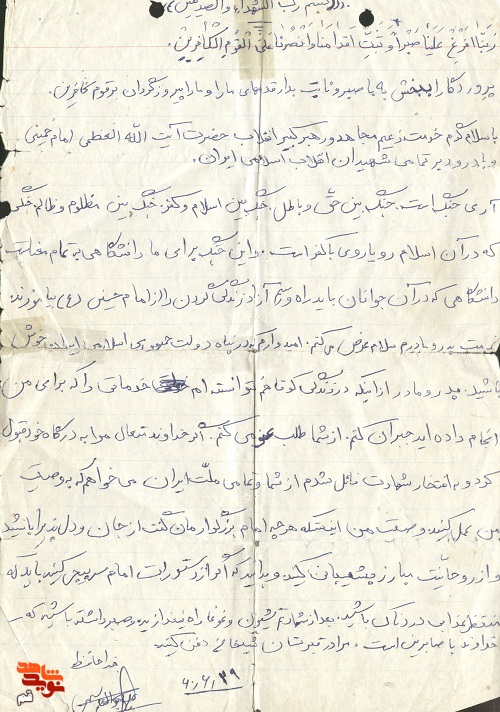 بسم رب الشهداء والصدیقین
رَبَّنا اَفْرِغْ عَلَیْنا صَبْراً وَ ثَبِّتْ اَقْدامَنا وَانْصُرْنا عَلَی الْقَوْمِ الْکافِرین
پروردگارا ببخش به ما صبر و ثابت بدار قدمهای ما را و ما را پیروز گردان بر قوم کافرین.
با سلام گرم خدمت زعیم مجاهد و رهبر کبیر انقلاب حضرت آیت الله العظمی امام خمینی
و با درود بر تمامی شهیدان انقلاب اسلامی ایران.
آری جنگ است. جنگ بین حق و باطل. جنگ بین اسلام و کفر. جنگ بین مظلوم و ظالم جنگی
که در آن اسلام رویاروی با کفر است. و این جنگ برای ما دانشگاهی به تمام
دانشگاهی که در آن جوانان باید راه و رسم آزاد زندگی کردن را از امام حسین (ع) بیاموزند.
خدمت پدر و مادرم سلام عرض می کنم. امیدوارم که در پناه دولت جمهوری اسلامی ایران خوش
باشید. پدر و مادر از اینکه در زندگی کوتاهم نتوانسته ام خدماتی را که برای من
انجام داده اید جبران کنم. از شما طلب عفو می کنم. اگر خداوند متعال مرا به درگاه خود قبول
کرد و به افتخار شهادت نائل شدم از شما و تمامی ملّت ایران می خواهم که به وصیت
من عمل کنید. وصیت من اینست که هر چه امام بزرگوارمان گفت از جان و دل پذیرا باشید
و از روحانیّت مبارز پشتیبانی کنید و بدانید که اگر از دستورات امام سرپیچی کنید باید که
منتظر عذاب دردناکی باشید. بعد از شهادتم شیون و غوغا راه نیندازید و صبر داشته باشید که
خداوند با صابرین است. مرا در قبرستان دفن کنید.
خداحافظ
۶۰/۶/۲۹
شاهد
نوید